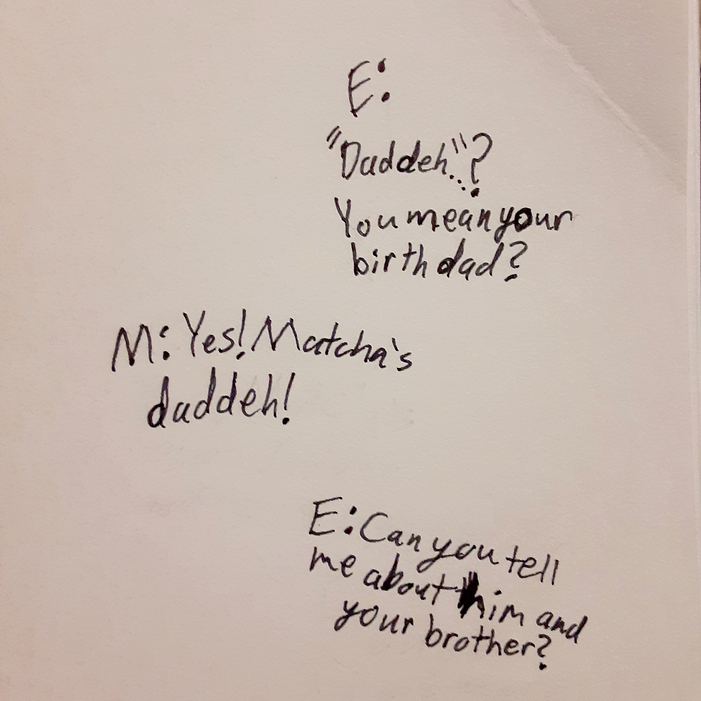 E:
"Daddeh..."?
You mean your
birth dad?
M: Yes! Matcha's
daddeh!
E: Can you tell
me about him and
your brother?